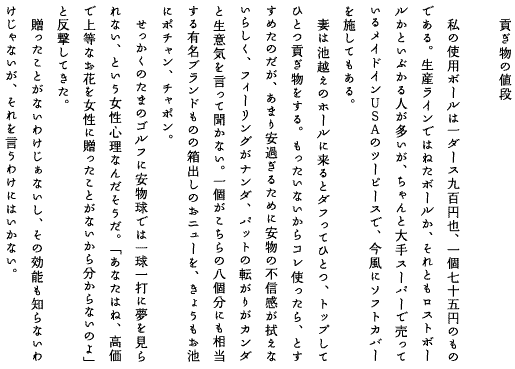 貢ぎ物の値段
私の使用ボールは一ダース九百円也、一個七十五円のもの
である。生産ラインではねたボールか、それともロストボー
ルかといぶかる人が多いが、ちゃんと大手スーパーで売って
いるメイドインＵＳＡのツーピースで、今風にソフトカバー
を施してもある。
妻は池越えのホールに来るとダフってひとつ、トップして
ひとつ貢ぎ物をする。もったいないからコレ使ったら、とす
すめたのだが、あまり安過ぎるために安物の不信感が拭えな
いらしく、フィーリングがナンダ、パットの転がりがカンダ
と生意気を言って聞かない。一個がこちらの八個分にも相当
する有名ブランドものの箱出しのおニューを、きょうもお池
にボチャン、チャポン。
せっかくのたまのゴルフに安物球では一球一打に夢を見ら
れない、という女性心理なんだそうだ。「あなたはね、高価
で上等なお花を女性に贈ったことがないから分からないのよ」
と反撃してきた。
贈ったことがないわけじぁないし、その効能も知らないわ
けじゃないが、それを言うわけにはいかない。